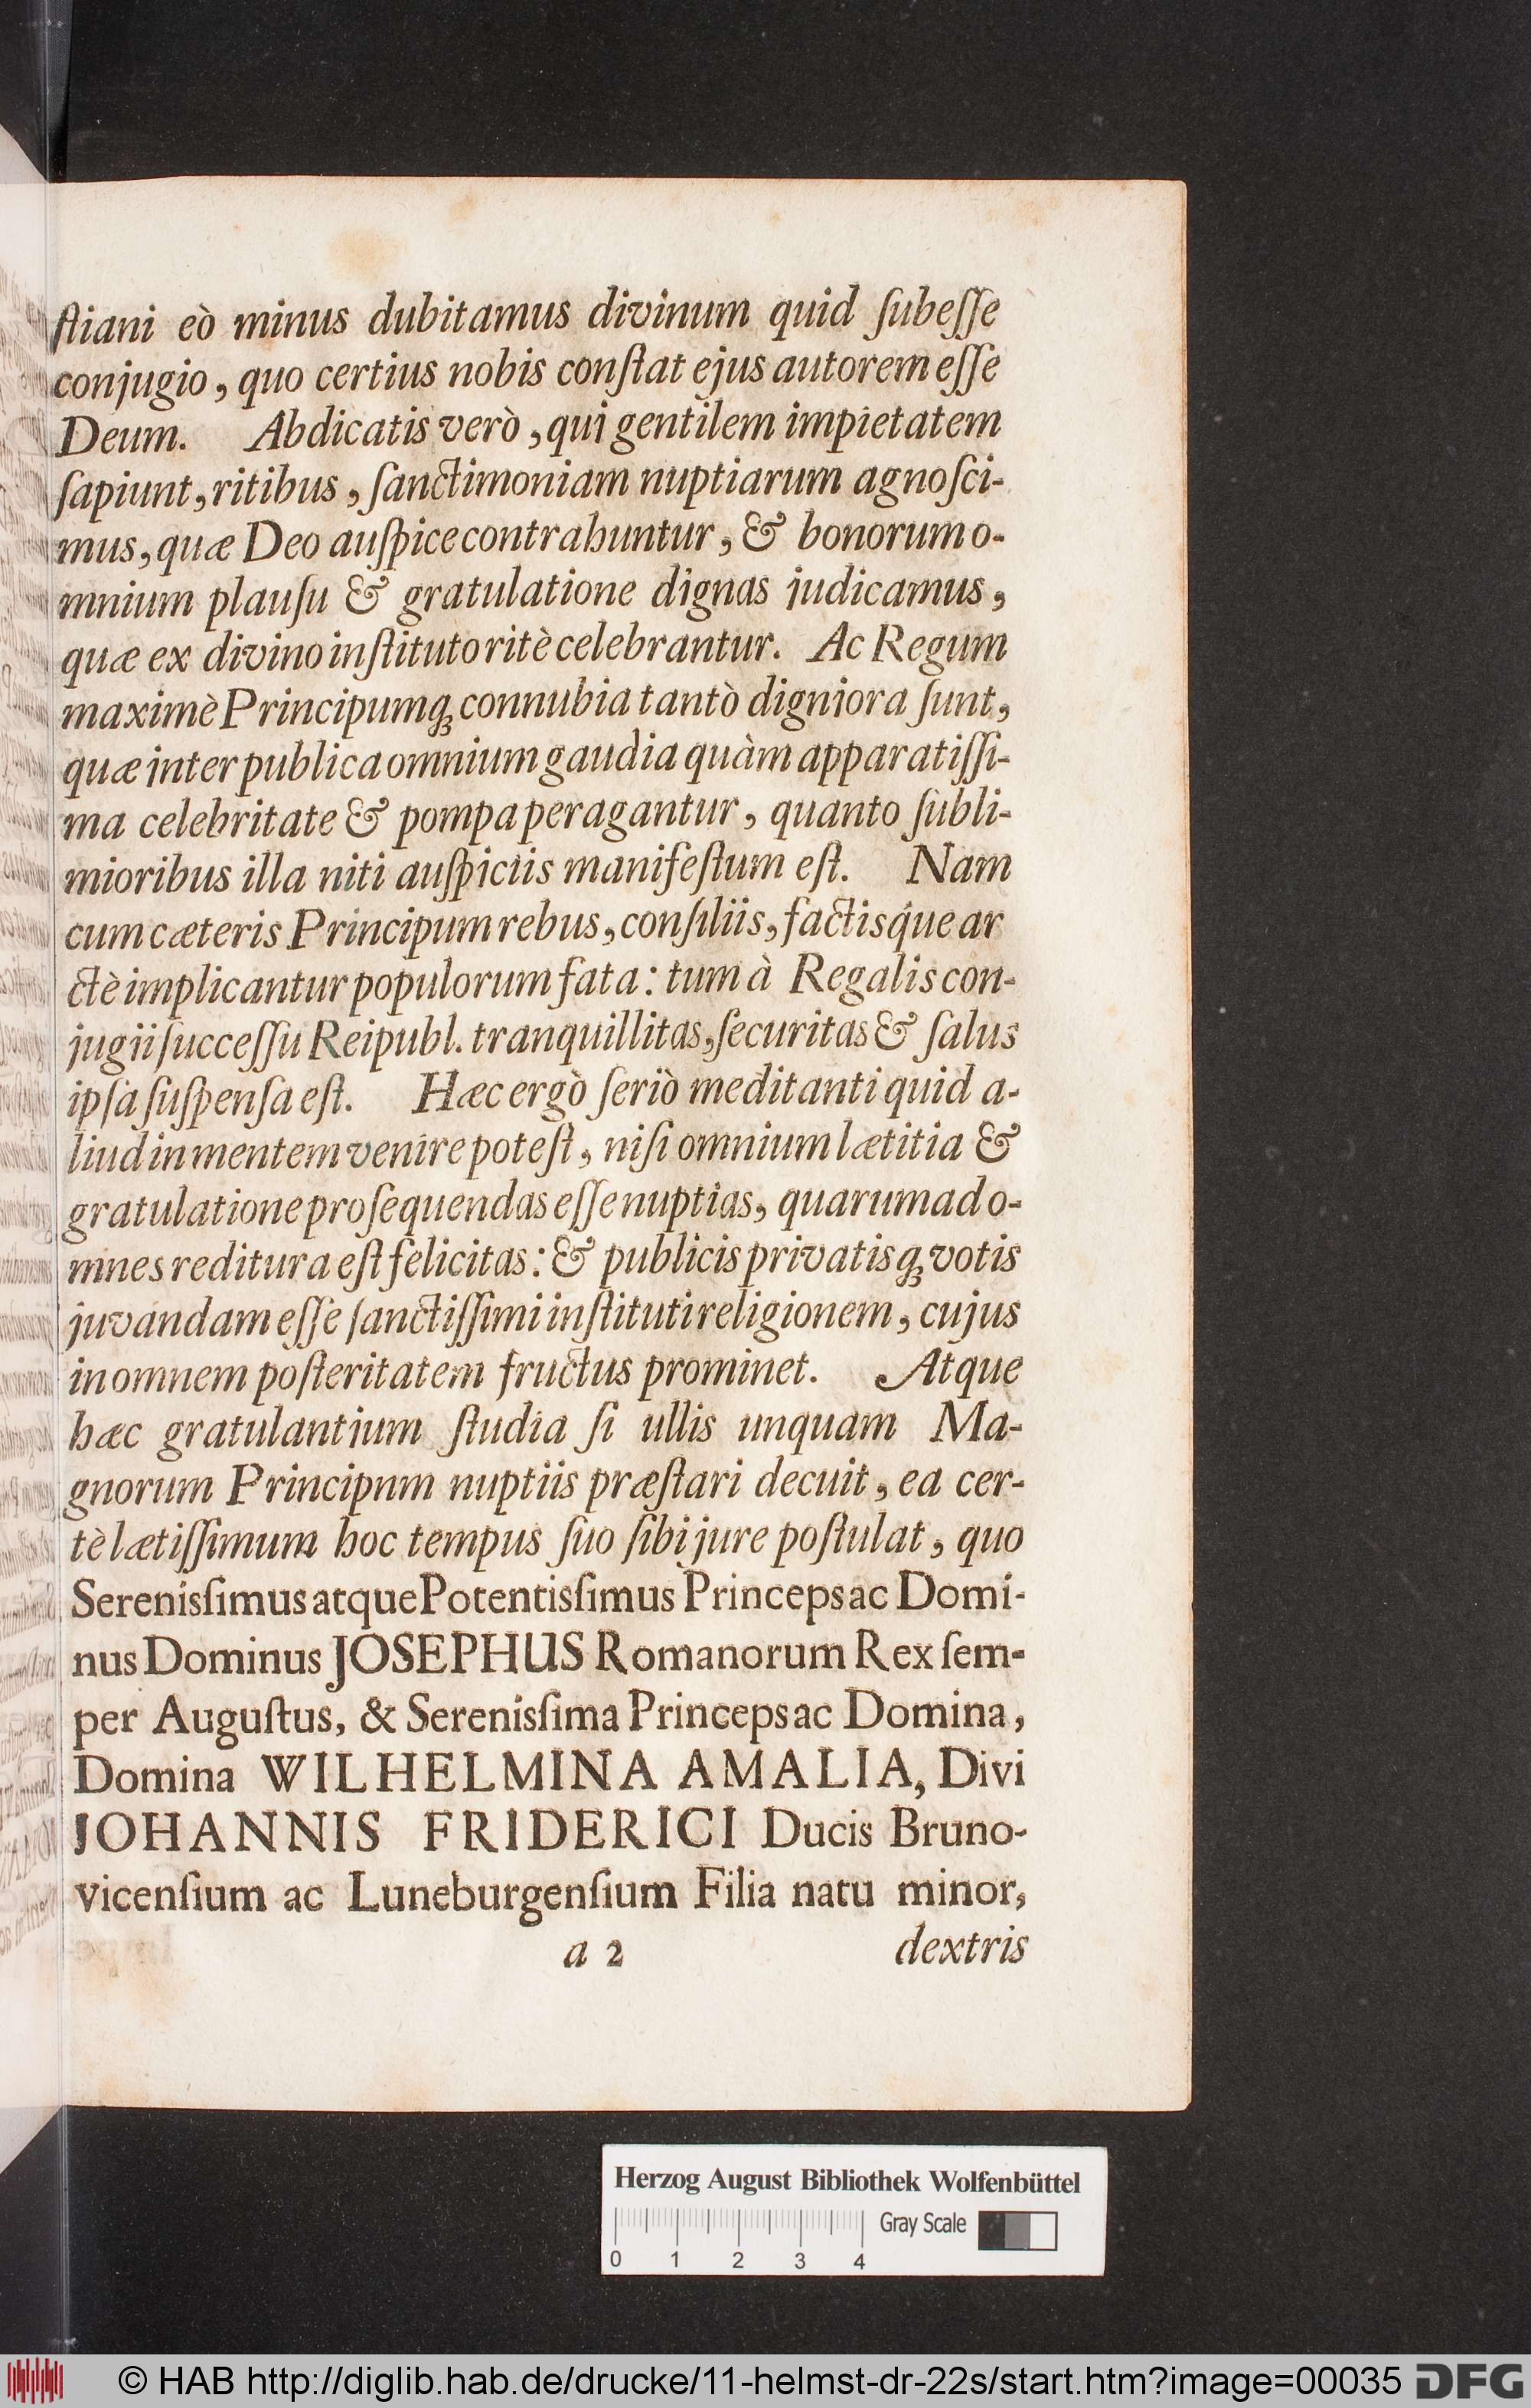 ſtiani eò minus dubitamus divinum quid ſubeſſe
conjugio, quo certius nobis conſtat ejus autorem eſſe
Deum. Abdicatis verò, qui gentilem impietatem
ſapiunt, ritibus, ſanctimoniam nuptiarum agnoſci-
mus, quæ Deo auſpice contrahuntur, & bonorum o-
mnium plauſu & gratulatione dignas judicamus,
quæ ex divino inſtituto ritè celebrantur. Ac Regum
maximè Principumq; connubia tantò digniora ſunt,
quæ inter publica omnium gaudia quàm apparatiſſi-
ma celebritate & pompa peragantur, quanto ſubli-
mioribus illa niti auſpiciis manifeſtum eſt. Nam
cum cæteris Principum rebus, conſiliis, factisq́ue ar
ctè implicantur populorum fata: tum à Regalis con-
jugii ſucceſſu Reipubl. tranquillitas, ſecuritas & ſalus
ipſa ſuſpenſa eſt. Hæc ergò ſeriò meditanti quid a-
liud in mentem venire poteſt, niſi omnium lætitia &
gratulatione proſequendas eſſe nuptias, quarum ad o-
mnes reditura eſt felicitas: & publicis privatisq; votis
juvandam eſſe ſanctiſſimi inſtituti religionem, cujus
in omnem poſteritatem fructus prominet. Atque
hæc gratulantium ſtudia ſi ullis unquam Ma-
gnorum Principnm nuptiis præſtari decuit, ea cer-
tè lætiſſimum hoc tempus ſuo ſibi jure poſtulat, quo
Sereniſſimus atque Potentiſſimus Princeps ac Domi-
nus Dominus JOSEPHUS Romanorum Rex ſem-
per Auguſtus, & Sereniſſima Princeps ac Domina,
Domina WILHELMINA AMALIA, Divi
JOHANNIS FRIDERICI Ducis Bruno-
vicenſium ac Luneburgenſium Filia natu minor,
a 2 dextris
Herzog August Bibliothek Wolfenbüttel
Gray Scale
0 1 2 3 4
© HAB http://diglib.hab.de/drucke/11-helmst-dr-22s/start.htm?image=00035 DFG